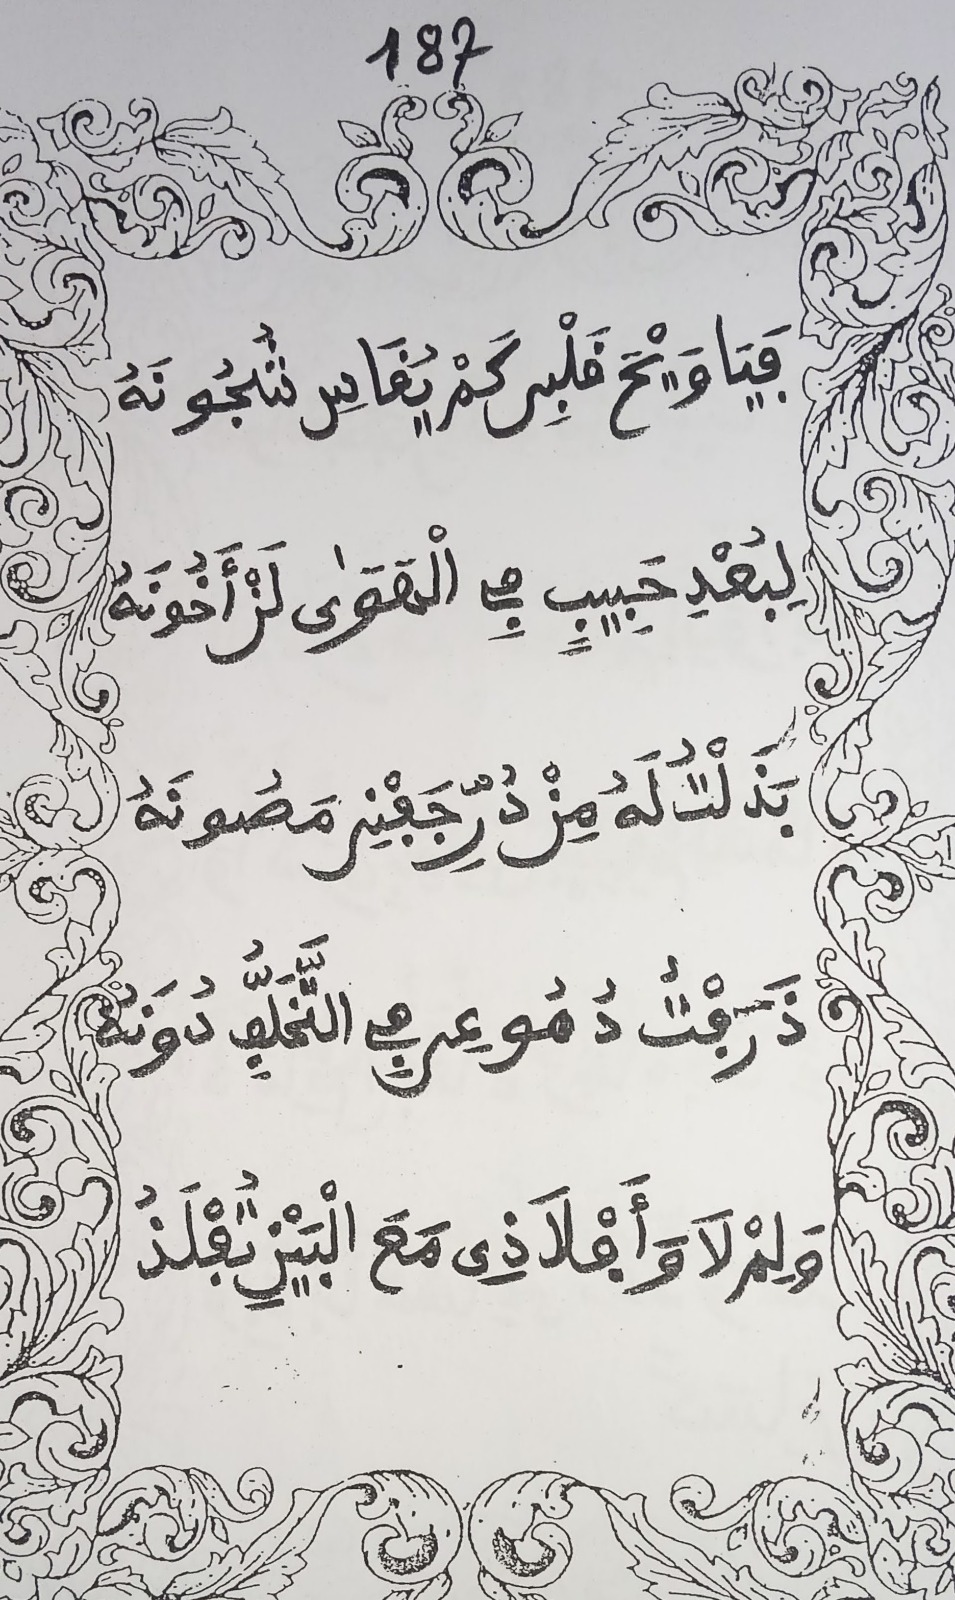 187
فَيَا وَيْحَ قَلْبِي كَمْ يُقَاسِي شُجُونَهُ
لِبُعْدِ حَبِيبٍ فِي الْهَوَى لَنْ أَخُونَهُ
بَذَلْتُ لَهُ مِنْ دُرِّ جَفْنِي مَصُونَهُ
ذَرَفْتُ دُمُوعِي فِي دُونَهُ
وَلِمْ لَا وَأَفْلَاذِي مَعَ الْبَيْنِ تُفْلَذُ